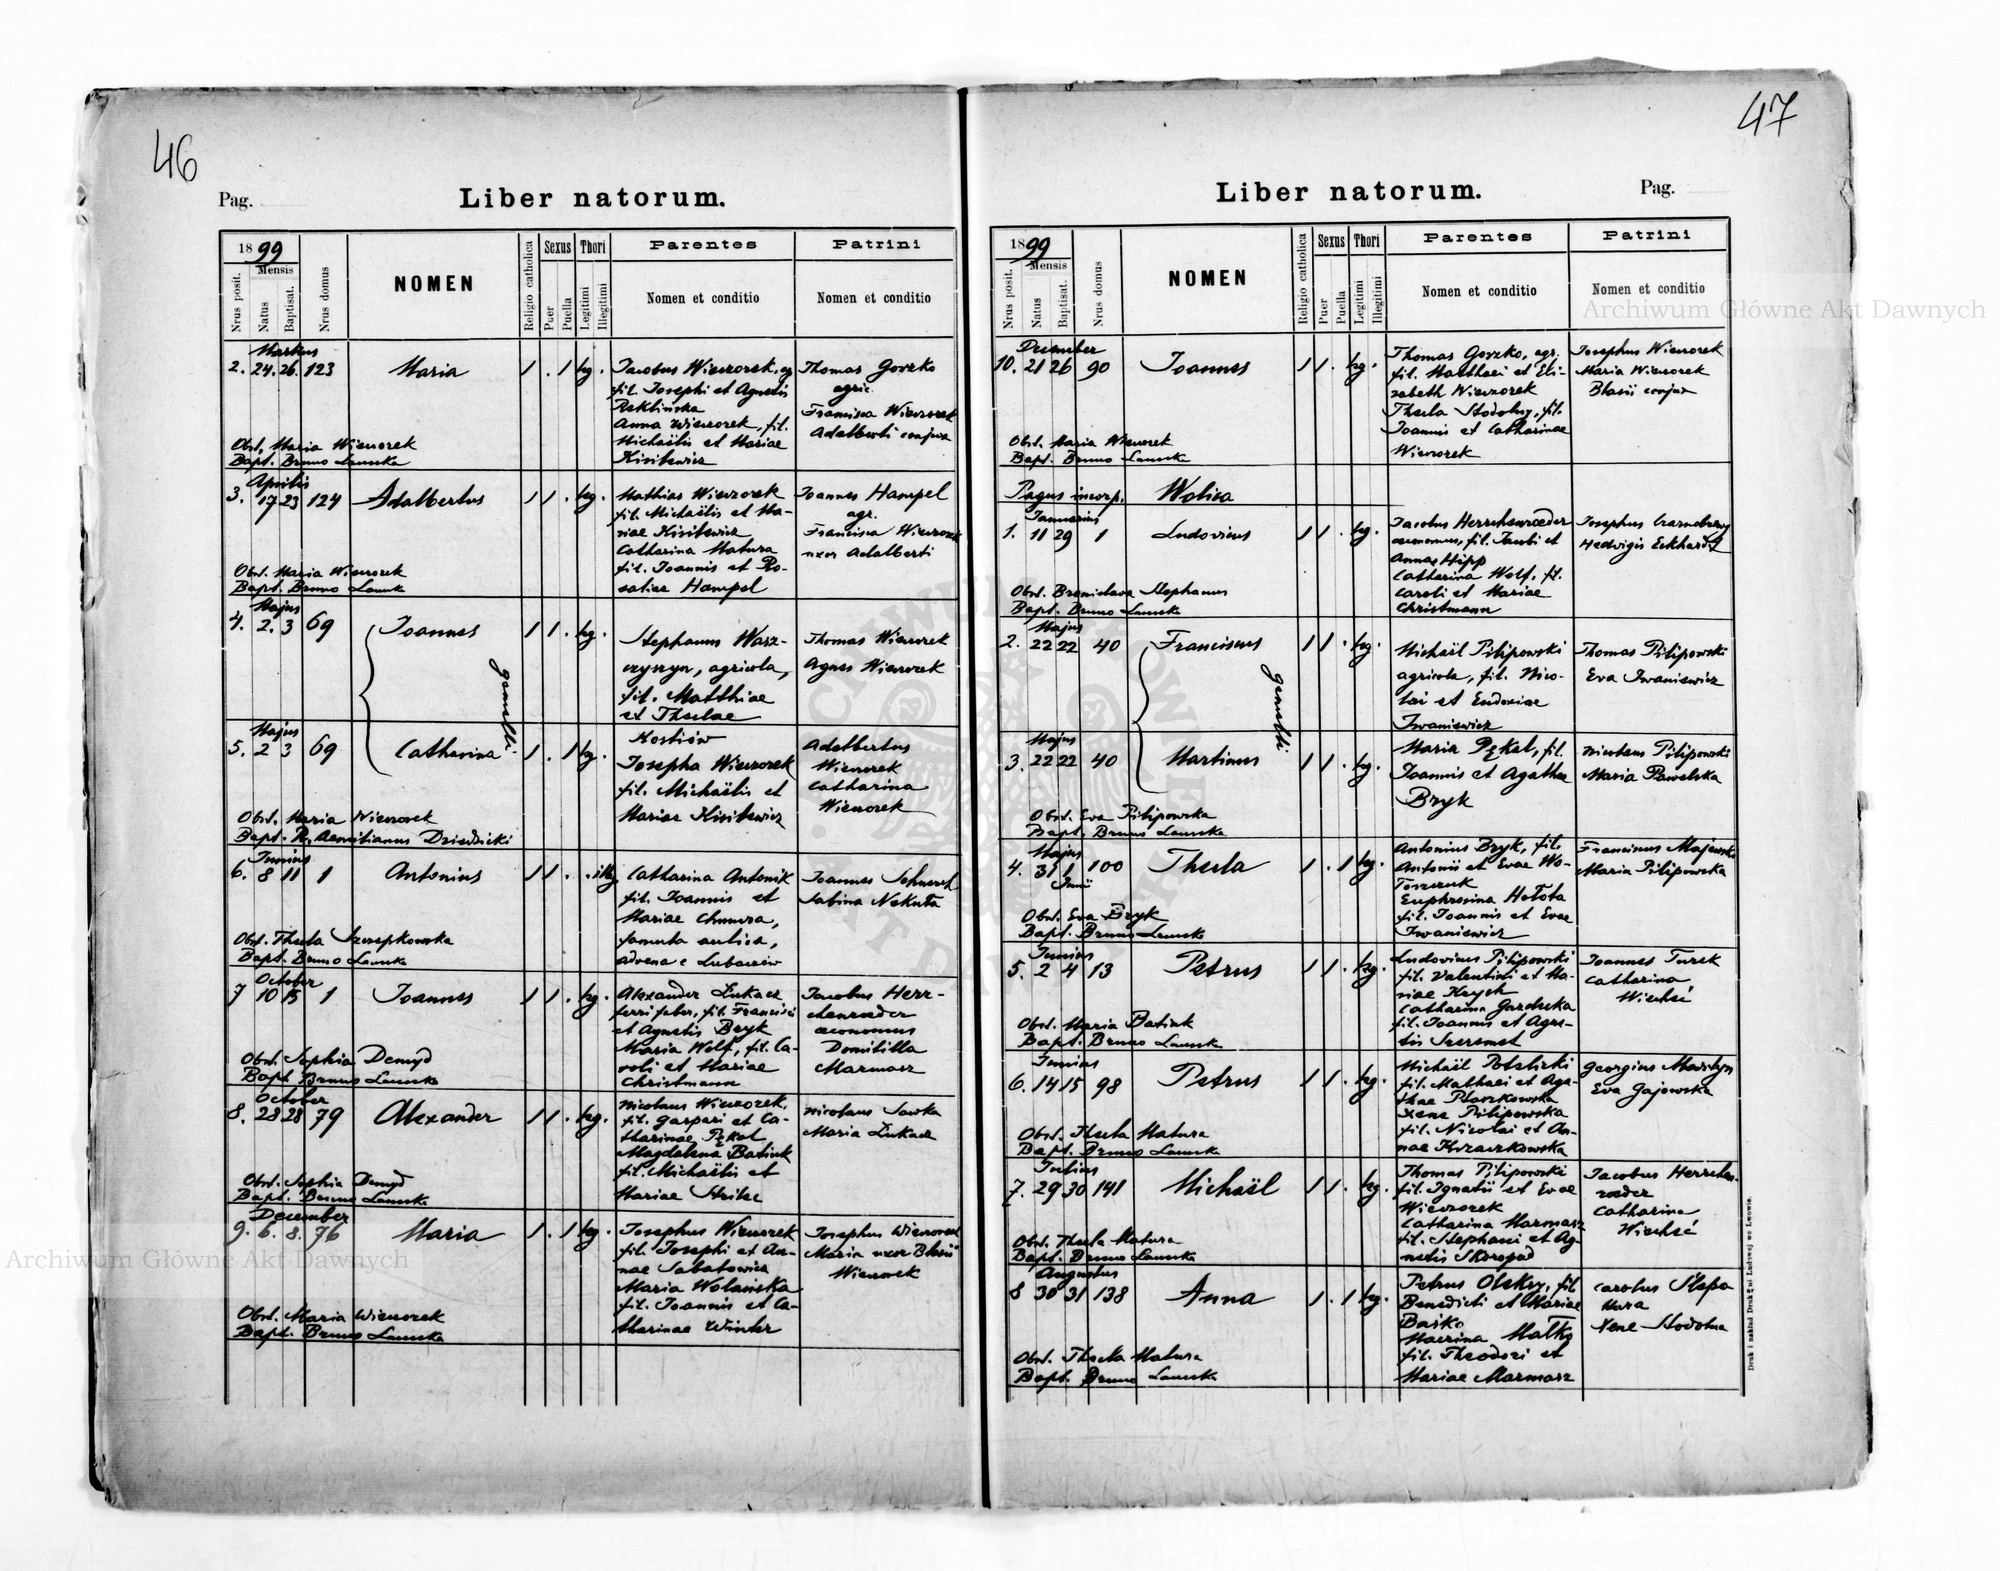 46
Pag.
Liber natorum.
1899
Mensis
Nrus posit.
Natus
Baptisat.
Nrus domus
NOMEN
Religio catholica
Sexus
Puer
Puella
Thori
Legitimi
Illegitimi
Parentes
Nomen et conditio
Patrini
Nomen et conditio
Martius
2. 24. 26. 123 Maria 1 . 1 leg.
Jacobus Wieczorek, ag
fil. Josephi et Agnetis
Anna Wieczorek, fil.
Michaëlis et Mariae
Kisilewicz
Thomas Gorzko
agric.
Francisca Wieczorek
Adalberti conjux
Obst. Maria Wieczorek
Bapt. Bruno
Aprilis
3. 17 23 124 Adalbertus 1 1 . leg.
Mathias Wieczorek
fil. Michaëlis et Ma-
riae Kisilewicz
Catharina Matura
fil. Joannis et Ro-
saliae Hampel
Joannes Hampel
agr.
Francisca Wieczorek
uxor Adalberti
Obst. Maria Wieczorek
Bapt. Bruno
Majus
4. 2. 3 69 Joannes 1 1 . leg.
gemelli
Stephanus Wasz-
czyszyn, agricola,
fil. Matthiae
et Theclae
Thomas Wieczorek
Agnes Wieczorek
Majus
5. 2 3 69 Catharina 1 . 1 leg.
Kostiów
Josepha Wieczorek
fil. Michaëlis et
Mariae Kisilewicz
Adalbertus
Wieczorek
Catharina
Wieczorek
Obst. Maria Wieczorek
Bapt. Dziedzicki
Junius
6. 8 11 1 Antonius 1 1 . . illeg
Catharina Antonik
fil. Joannis et
Mariae Chmura,
famula aulica,
advena e Lubaczów
Joannes
Sabina Nekuła
Obst. Thecla Szczepkowska
Bapt. Bruno
October
7 10 15 1 Joannes 1 1 . leg.
Alexander Łukacz
ferri faber, fil. Francisci
et Agnetis Bryk
Maria Wolf, fil. Ca-
roli et Mariae
Christmann
Jacobus Herr-
chenroeder
oeconomus
Domitilla
Marmasz
Obst. Sophia Demyd
Bapt. Bruno
October
8. 28 28 79 Alexander 1 1 . leg.
Nicolaus Wieczorek,
fil. Gaspari et Ca-
tharinae Pękal
Magdalena Batiuk
fil. Michaëlis et
Mariae
Nicolaus Sawka
Maria Łukacz
Obst. Sophia Demyd
Bapt. Bruno
December
9. 6. 8. 76 Maria 1 . 1 leg.
Josephus Wieczorek
fil. Josephi et An-
nae Sabatowicz
Maria Wolańska
fil. Joannis et Ca-
tharinae Winter
Josephus Wieczorek
Maria uxor Blasii
Wieczorek
Obst. Maria Wieczorek
Bapt. Bruno
47
Liber natorum.
Pag.
1899
Mensis
Nrus posit.
Natus
Baptisat.
Nrus domus
NOMEN
Religio catholica
Sexus
Puer
Puella
Thori
Legitimi
Illegitimi
Parentes
Nomen et conditio
Patrini
Nomen et conditio
December
10. 21 26 90 Joannes 1 1 . leg.
Thomas Gorzko, agr.
fil. Matthaei et Eli-
zabeth Wieczorek
Thecla Stodolny, fil.
Joannis et Catharinae
Wieczorek
Josephus Wieczorek
Maria Wieczorek
Blasii conjux
Obst. Maria Wieczorek
Bapt. Bruno
Pagus incorp. Wolica
Januarius
1. 11 29 1 Ludovicus 1 1 . leg.
Jacobus Herrchenroeder
oeconomus, fil. Jacobi et
Annae Hipp
Catharina Wolf, fil.
Caroli et Mariae
Christmann
Josephus
Hedvigis Eckhardt
Obst. Bronislava Stephanus
Bapt. Bruno
Majus
2. 22 22 40 Franciscus 1 1 . leg.
gemelli
Michaël Pilipowski
agricola, fil. Nico-
lai et Eudociae
Iwaniewicz
Thomas Pilipowski
Eva Iwaniewicz
Majus
3. 22 22 40 Martinus 1 1 . leg.
Maria Pękal, fil.
Joannis et Agathae
Bryk
Nicolaus Pilipowski
Maria Pawelska
Obst. Eva Pilipowska
Bapt. Bruno
Majus
4. 31 1 100 Thecla 1 . 1 leg.
Junii
Antonius Bryk, fil.
Antonii et Evae Wo-
Euphrosina Hołota
fil. Joannis et Evae
Iwaniewicz
Franciscus Majewski
Maria Pilipowska
Obst. Eva Bryk
Bapt. Bruno
Junius
5. 2 4 13 Petrus 1 1 . leg.
Ludovicus Pilipowski
fil. Valentini et Ma-
riae Kryck
Catharina
fil. Joannis et Agne-
tis Szeremet
Joannes Turek
Catharina
Wiecheć
Obst. Maria Batiuk
Bapt. Bruno
Junius
6. 14 15 98 Petrus 1 1 . leg.
Michaël
fil. Mathaei et Aga-
thae
Xene Pilipowska
fil. Nicolai et An-
nae Krzaczkowska
Georgius Macilyn
Eva Gajewska
Obst. Thecla Matura
Bapt. Bruno
Julius
7. 29 30 141 Michaël 1 1 . leg.
Thomas Pilipowski
fil. Ignatii et Evae
Wieczorek
Catharina Marmasz
fil. Stephani et Ag-
netis Skoropad
Jacobus Herrchen-
roeder
Catharina
Wiecheć
Obst. Thecla Matura
Bapt. Bruno
Augustus
8 30 31 138 Anna 1 . 1 leg.
Petrus Oleksy, fil.
Benedicti et Mariae
Baśko
Macrina Małko
fil. Theodori et
Mariae Marmasz
Carolus
Xene Stodolna
Obst. Thecla Matura
Bapt. Bruno
Druk i nakład Drukarni Ludowej we Lwowie.
Archiwum Główne Akt Dawnych
Archiwum Główne Akt Dawnych